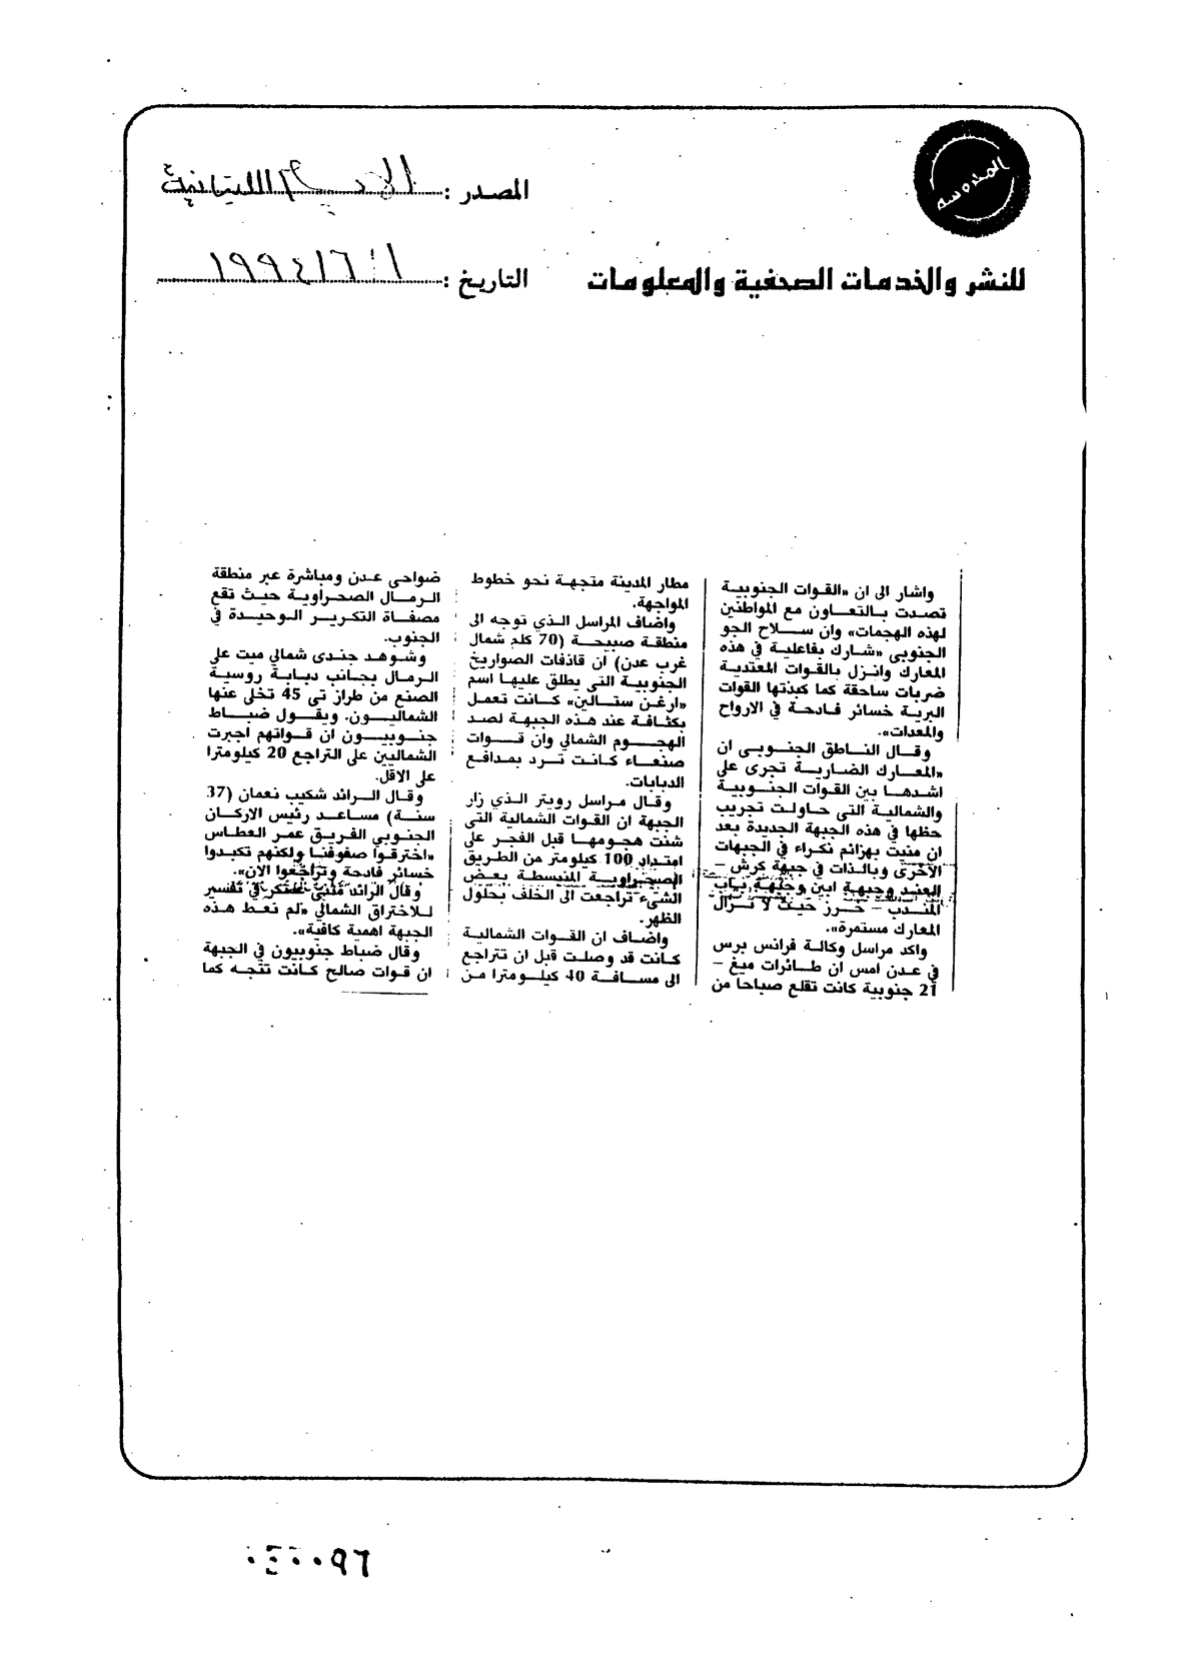 المدوسه
المصدر : اللبنانية
للنشر والخدمات الصحفية والمعلومات
التاريخ : ١٩٩٤/٦/١
واشار الى ان «القوات الجنوبية
تصدت بالتعاون مع المواطنين
لهذه الهجمات» وان سلاح الجو
الجنوبي «شارك بفاعلية في هذه
المعارك وانزل بالقوات المعتدية
ضربات ساحقة كما كبدتها القوات
البرية خسائر فادحة في الارواح
والمعدات».
وقال الناطق الجنوبي ان
«المعارك الضارية تجرى على
اشدها بين القوات الجنوبية
والشمالية التي حاولت تجريب
حظها في هذه الجبهة الجديدة بعد
ان منيت بهزائم نكراء في الجبهات
الأخرى وبالذات في جبهة كرش –
العند وجبهة ابين وجبهة باب
المندب – خرز حيث لا تزال
المعارك مستمرة».
واكد مراسل وكالة فرانس برس
في عدن امس ان طائرات ميغ –
21 جنوبية كانت تقلع صباحا من
مطار المدينة متجهة نحو خطوط
المواجهة.
واضاف المراسل الذي توجه الى
منطقة صبيحة (70 كلم شمال
غرب عدن) ان قاذفات الصواريخ
الجنوبية التي يطلق عليها اسم
«ارغن ستالين» كانت تعمل
بكثافة عند هذه الجبهة لصد
الهجوم الشمالي وان قوات
صنعاء كانت ترد بمدافع
الدبابات.
وقال مراسل رويتر الذي زار
الجبهة ان القوات الشمالية التي
شنت هجومها قبل الفجر على
امتداد 100 كيلومتر من الطريق
الصحراوية المنبسطة بعض
الشىء تراجعت الى الخلف بحلول
الظهر.
واضاف ان القوات الشمالية
كانت قد وصلت قبل ان تتراجع
الى مسافة 40 كيلومترا من
ضواحي عدن ومباشرة عبر منطقة
الرمال الصحراوية حيث تقع
مصفاة التكرير الوحيدة في
الجنوب.
وشوهد جندى شمالي ميت على
الرمال بجانب دبابة روسية
الصنع من طراز تى 45 تخلى عنها
الشماليون. ويقول ضباط
جنوبيون ان قواتهم اجبرت
الشماليين على التراجع 20 كيلومترا
على الاقل.
وقال الرائد شكيب نعمان (37
سنة) مساعد رئيس الاركان
الجنوبي الفريق عمر العطاس
«اخترقوا صفوفنا ولكنهم تكبدوا
خسائر فادحة وتراجعوا الان».
وقال الرائد مثنى عسكر في تفسير
للاختراق الشمالي «لم نعط هذه
الجبهة اهمية كافية».
وقال ضباط جنوبيون في الجبهة
ان قوات صالح كانت تتجه كما
٠٤٠٠٩٦